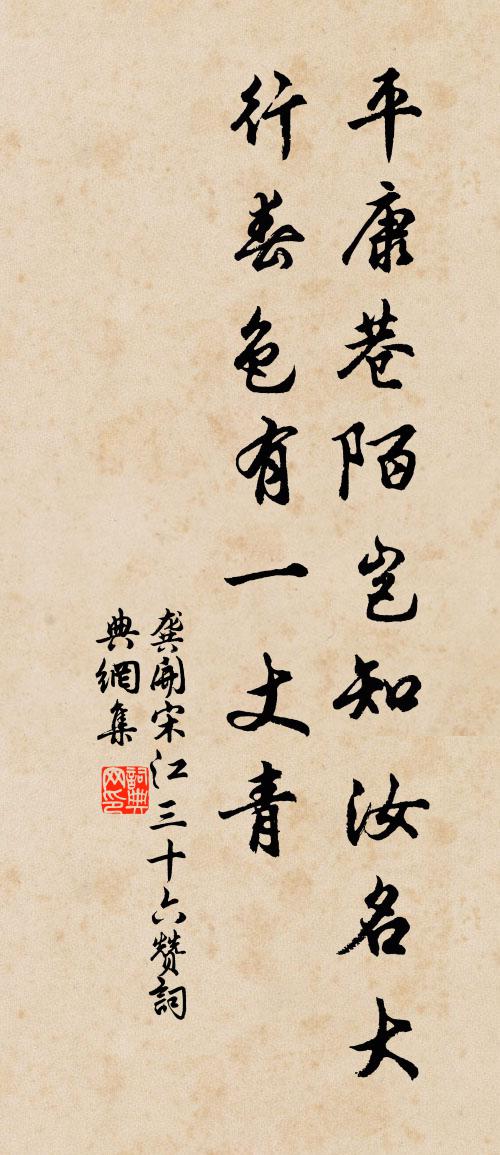 平康巷陌岂知汝名大
行春色有一丈青
龚開宋江三十六赞詞
典網集
詞典
网印